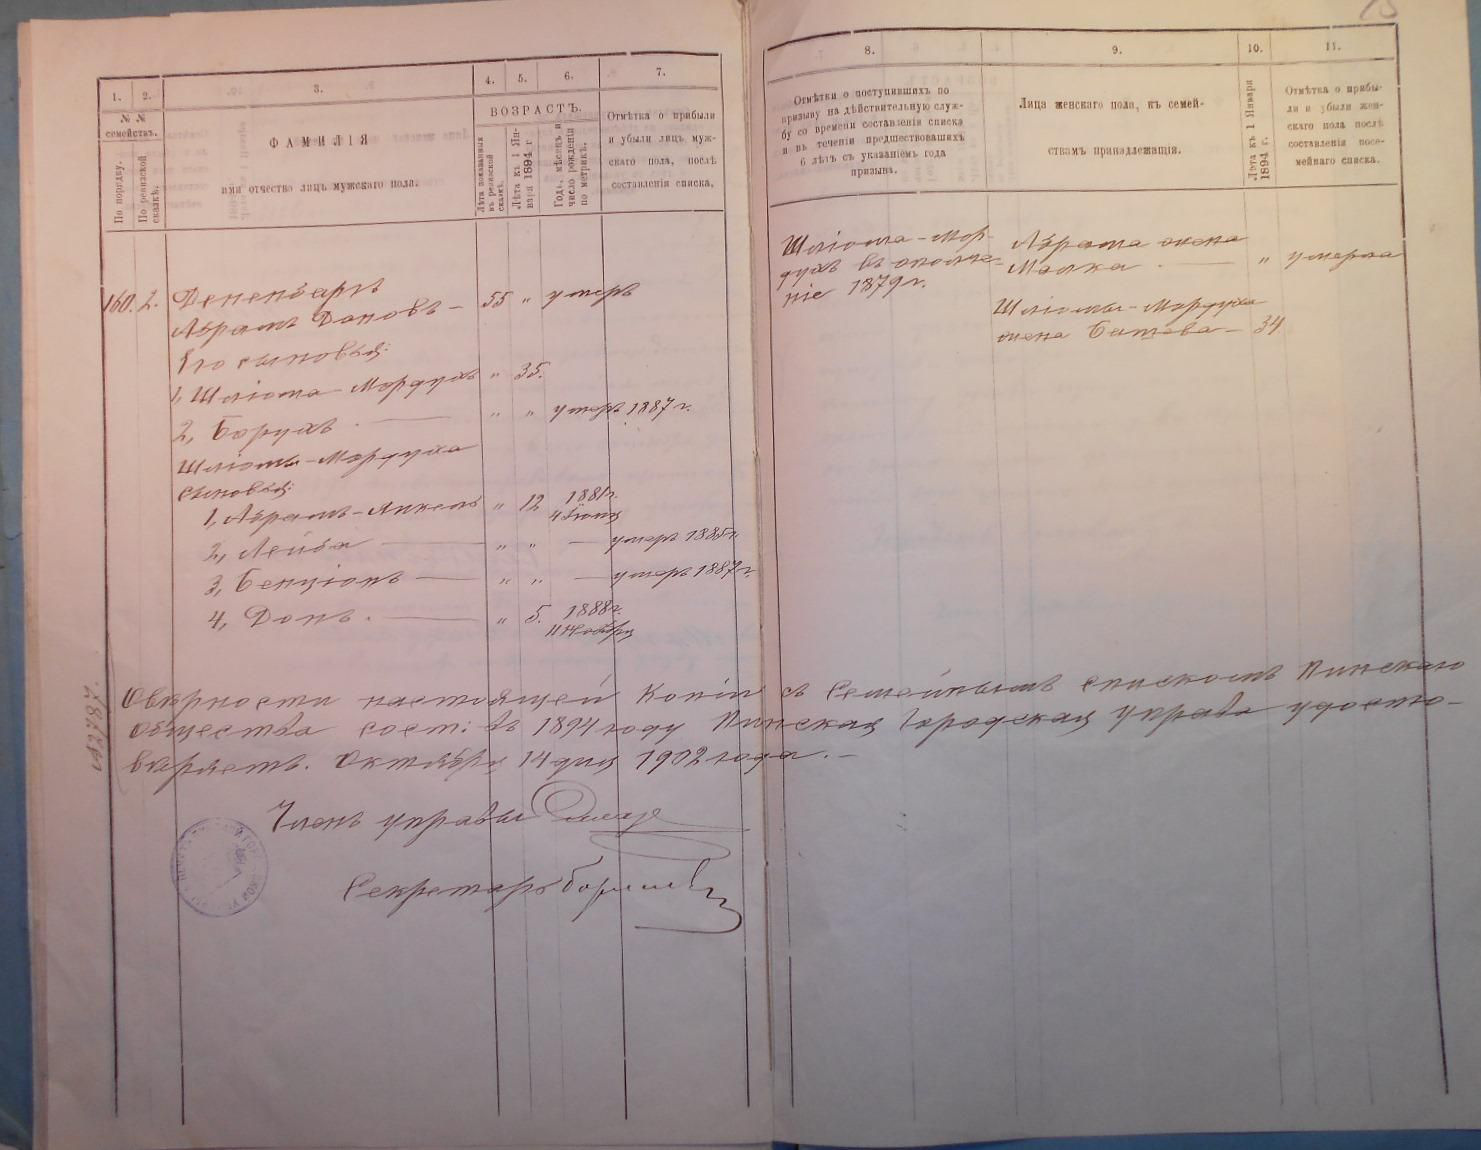 1.
2.
3.
4.
5.
6.
7.
№ №
семействъ.
По порядку.
По ревизской
сказкѣ.
ФАМИЛІЯ
имя отчество лицъ мужскаго пола.
ВОЗРАСТЪ.
Лѣта показанныя
въ ревизской
сказкѣ.
Лѣта къ 1 Ян-
варя 1894 г
Годъ, мѣсяцъ и
число рожденія
по метрикѣ.
Отмѣтка о прибыли
и убыли лицъ муж-
скаго пола, послѣ
составленія списка.
160. 2. Дененбаргъ
Абрамъ Доновъ — 55 " умеръ
Его сыновья:
1, Шліома-Мордухъ " 35.
2, Борухъ. — " " умеръ 1887 г.
Шліомы-Мордуха
сыновья:
1, Абрамъ-Янкель " 12 1881г.
4 Іюня
2, Лейба — " " — умеръ 1885г.
3, Бенціонъ — " " — умеръ 1887г.
4, Донъ. — " 5. 1888г.
11 Ноября
8.
9.
10.
11.
Отмѣтки о поступившихъ по
призыву на дѣйствительную служ-
бу со времени составленія списка
и въ теченіи предшествовашихъ
6 лѣтъ съ указаніемъ года
призыва.
Лица женскаго пола, къ семей-
ствамъ принадлежащія.
Лѣта къ 1 Января
1894 г.
Отмѣтка о прибы-
ли и убыли жен-
скаго пола послѣ
составленія посе-
мейнаго списка.
Шліома-Мор-
духъ въ ополче-
ніе 1879 г.
Абрама жена
Малка. — " умерла
Шліомы-Мордуха
жена Башева — 34
Овѣрности настоящей Копіи съ Семейнымъ спискомъ Пинскаго
общества сост: въ 1894 году Пинская Городская управа удосто-
вѣряетъ. Октября 14 дня 1902 года. —
Членъ управы
Секретарь